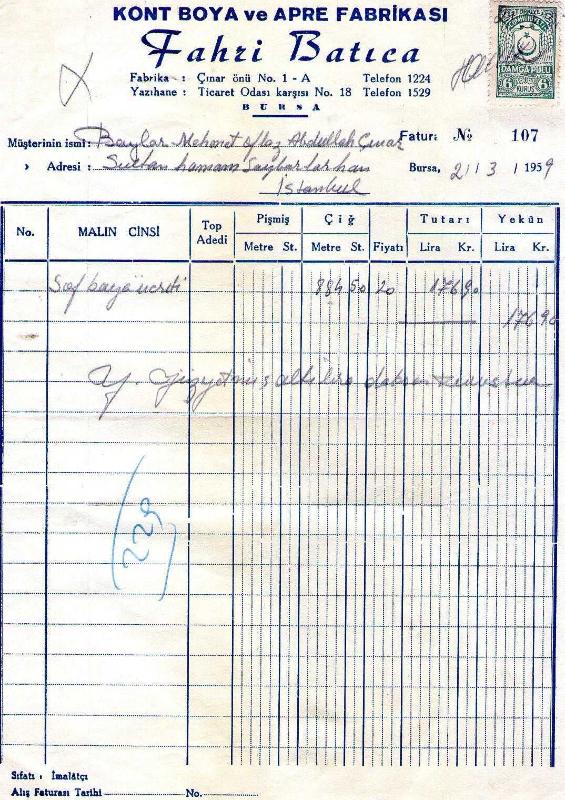 KONT BOYA ve APRE FABRİKASI
Fahri Batıca
Fabrika : Çınar önü No. 1 - A Telefon 1224
Yazıhane : Ticaret Odası karşısı No. 18 Telefon 1529
BURSA
DAMGA PULU
KURUŞ
Müşterinin ismi: Baylar Mehmet Oflaz Abdullah Çınar Fatura № 107
» Adresi : Sultan hamam han Bursa, 2/3/1959
İstanbul
No. MALIN CİNSİ Top Adedi Pişmiş Çiğ Fiyatı Tutarı Yekûn
Metre St. Metre St. Lira Kr. Lira Kr.
Saf boya ücreti 884 50 20 176 90
176 90
Y. Yüzyetmiş altı lira doksan kuruştur
(225)
Sıfatı : İmalâtçı
Alış Faturası Tarihi No.